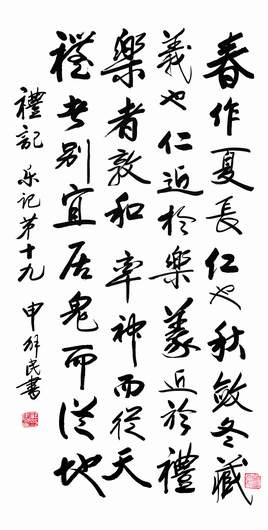 春作夏長仁也秋斂冬藏
義也仁近於樂義近於禮
樂者敦和率神而從天
禮者别宜居鬼而從地
禮記 乐记第十九 申 民書